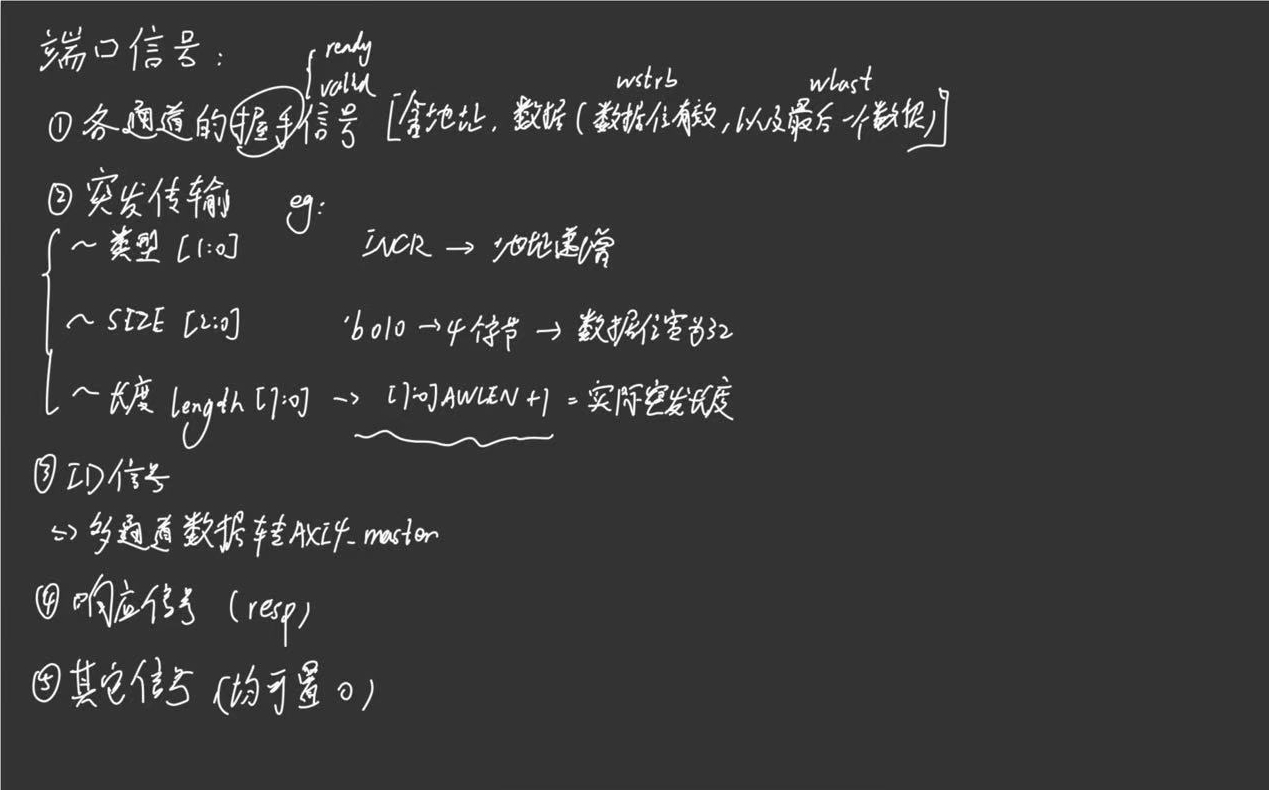 端口信号：
ready
valid
wstrb wlast
①各通道的握手信号 [含地址, 数据(数据位有效, 以及最后一个数据)]
②突发传输 eg:
~类型 [1:0] INCR → 地址递增
~SIZE [2:0] 'b010→4个字节→数据位宽为32
~长度 length [7:0] → [7:0]AWLEN+1 = 实际突发长度
③ID信号
=>多通道数据转AXI4_master
④响应信号 (resp)
⑤其它信号 (均可置0)